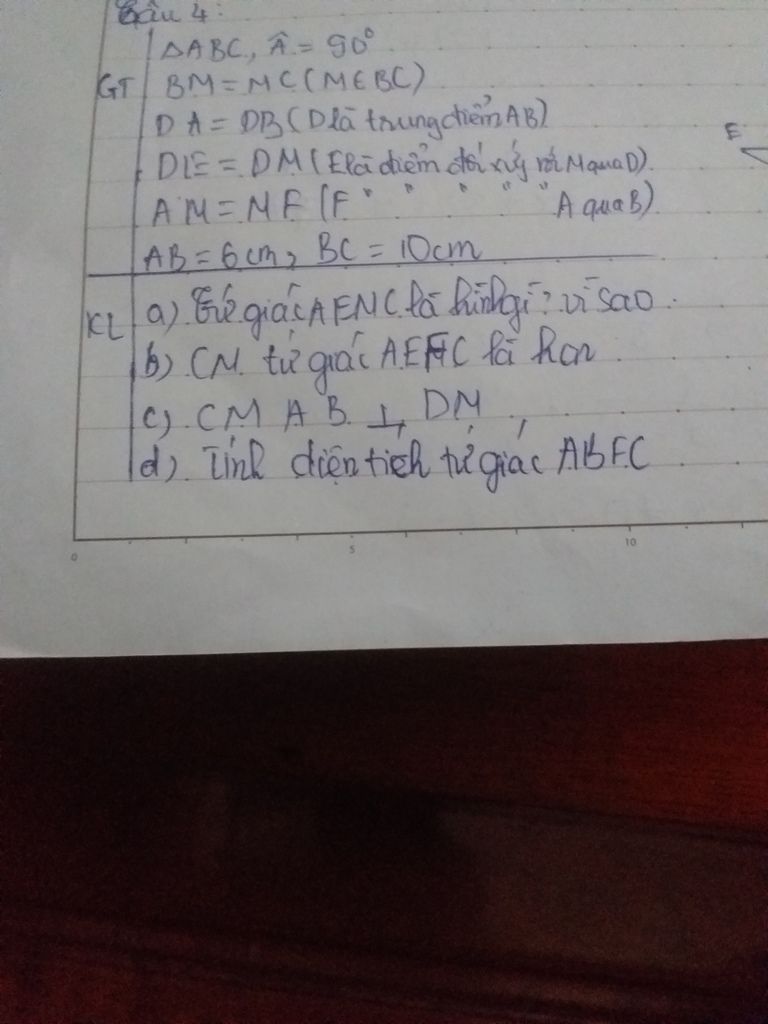 Câu 4:
ΔABC, Â = 90°
GT BM = MC (M∈BC)
DA = DB (D là trung điểm AB)
DE = DM (E là điểm đối xứng với M qua D)
AM = MF (F " " " " " A qua B)
AB = 6cm, BC = 10cm
KL a) Tứ giác AEMC là hình gì? vì sao.
b) CM tứ giác AEFC là hcn
c) CM AB ⊥ DM
d) Tính diện tích tứ giác ABFC
E
0 5 10